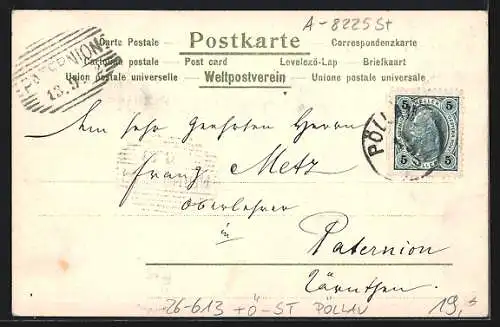 A-8225 St
Postkarte
Carte Postale Correspondenzkarte
Cartolina postale Post card Levelező-Lap Briefkaart
Union postale universelle Weltpostverein Unione postale universale
PATERNION
13.
5 HELLER 5
5 5
PÖLL
Dem sehr Geehrten Herrn
Franz Metz
Oberlehrer
in
Paternion
Kärnthen.
26-613 +Ö-ST PÖLLAU 19,-